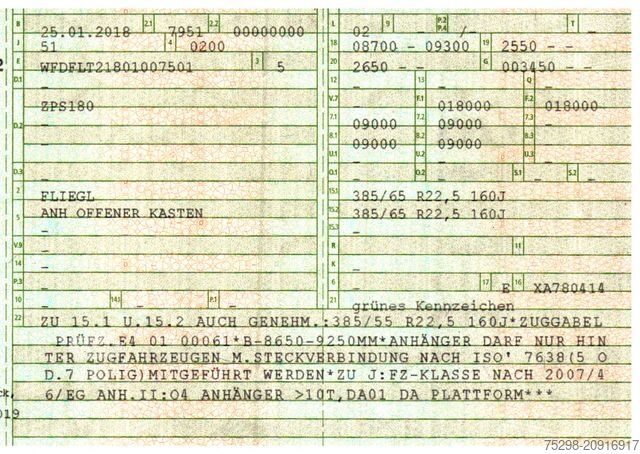 B 25.01.2018 2.1 7951 2.2 00000000 L 02 9 - P.2 P.4 -/- T -
J 51 4 0200 18 08700 - 09300 19 2550 - -
E WFDFLT21801007501 3 5 20 2650 - - G 003450 - -
D.1 - 12 - 13 - Q -
ZPS180 V.7 - F.1 018000 F.2 018000
D.2 - 7.1 09000 7.2 09000 7.3 -
- 8.1 09000 8.2 09000 8.3 -
- U.1 - U.2 - U.3 -
D.3 - O.1 - O.2 - S.1 - S.2 -
2 FLIEGL 15.1 385/65 R22,5 160J
5 ANH OFFENER KASTEN 15.2 385/65 R22,5 160J
- 15.3 -
V.9 - R - 11 -
14 - K -
P.3 - 6 - 17 E 16 XA780414
10 - 14.1 - P.1 - 21 grünes Kennzeichen
22 ZU 15.1 U.15.2 AUCH GENEHM.:385/55 R22,5 160J*ZUGGABEL
PRÜFZ.E4 01 00061*B-8650-9250MM*ANHÄNGER DARF NUR HIN
TER ZUGFAHRZEUGEN M.STECKVERBINDUNG NACH ISO' 7638(5 O
D.7 POLIG)MITGEFÜHRT WERDEN*ZU J:FZ-KLASSE NACH 2007/4
6/EG ANH.II:O4 ANHÄNGER >10T,DA01 DA PLATTFORM***
019
75298-20916917